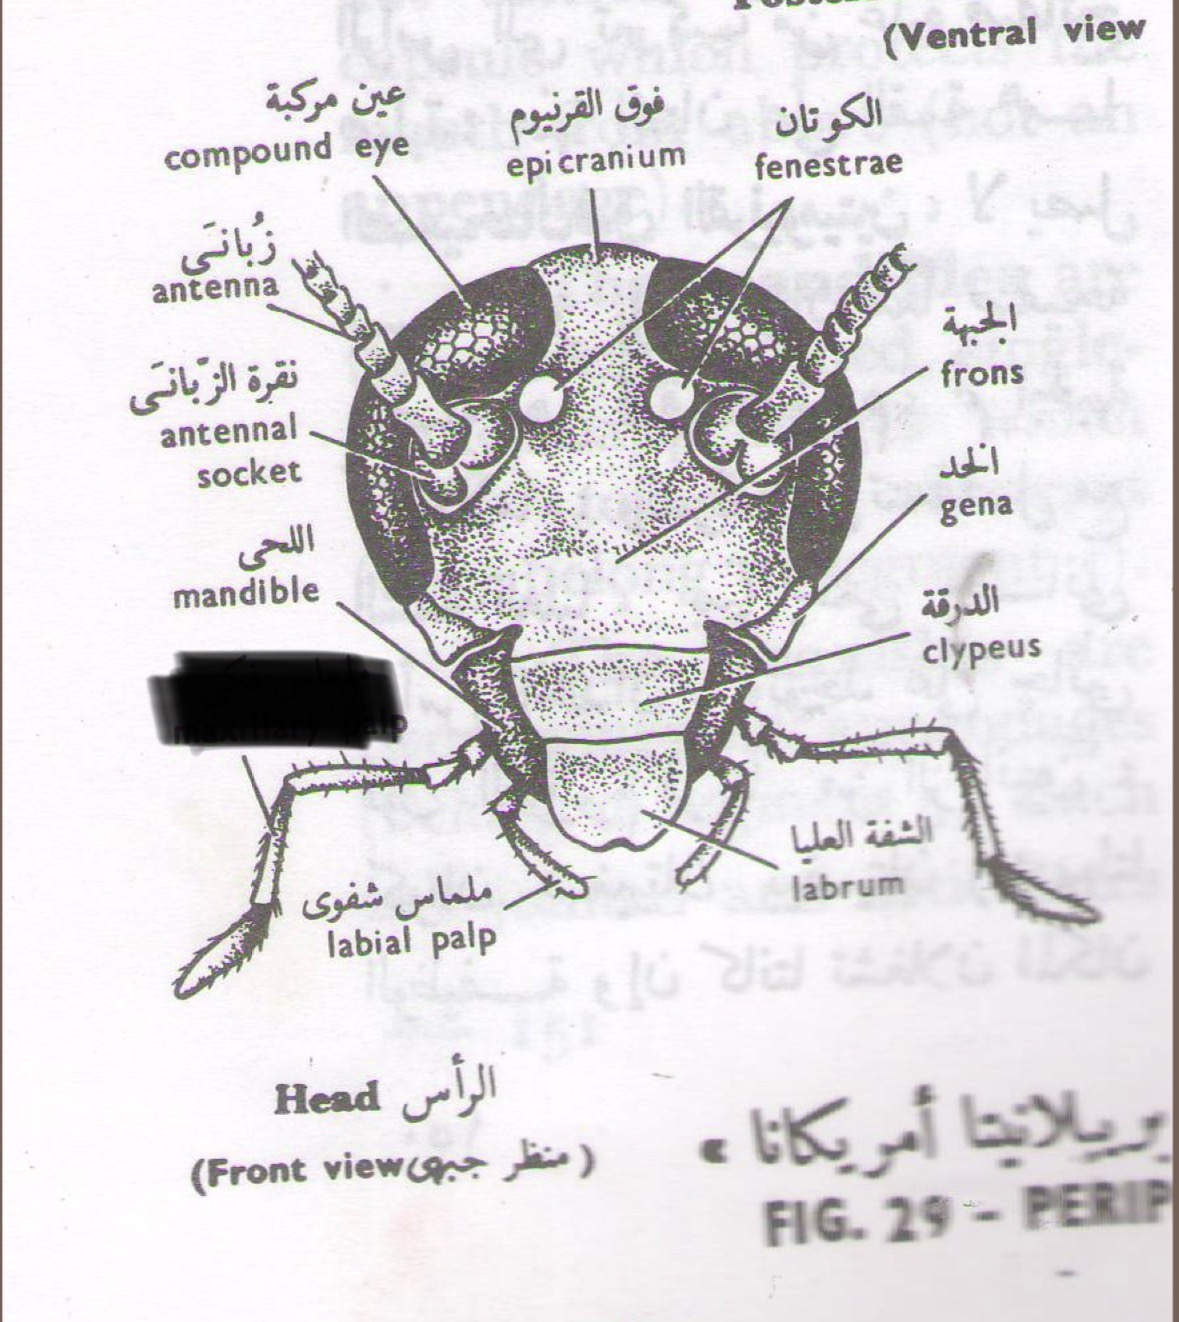 (Ventral view
عين مركبة
compound eye
فوق القرنيوم
epicranium
الكوتان
fenestrae
زُبانَى
antenna
الجبهة
frons
نقرة الزّبانَى
antennal
socket
الخد
gena
اللحى
mandible
الدرقة
clypeus
maxillary palp
الشفة العليا
labrum
ملماس شفوى
labial palp
Head الرأس
(Front view منظر جبهى)
أمريكانا »
FIG. 29 - PERIP